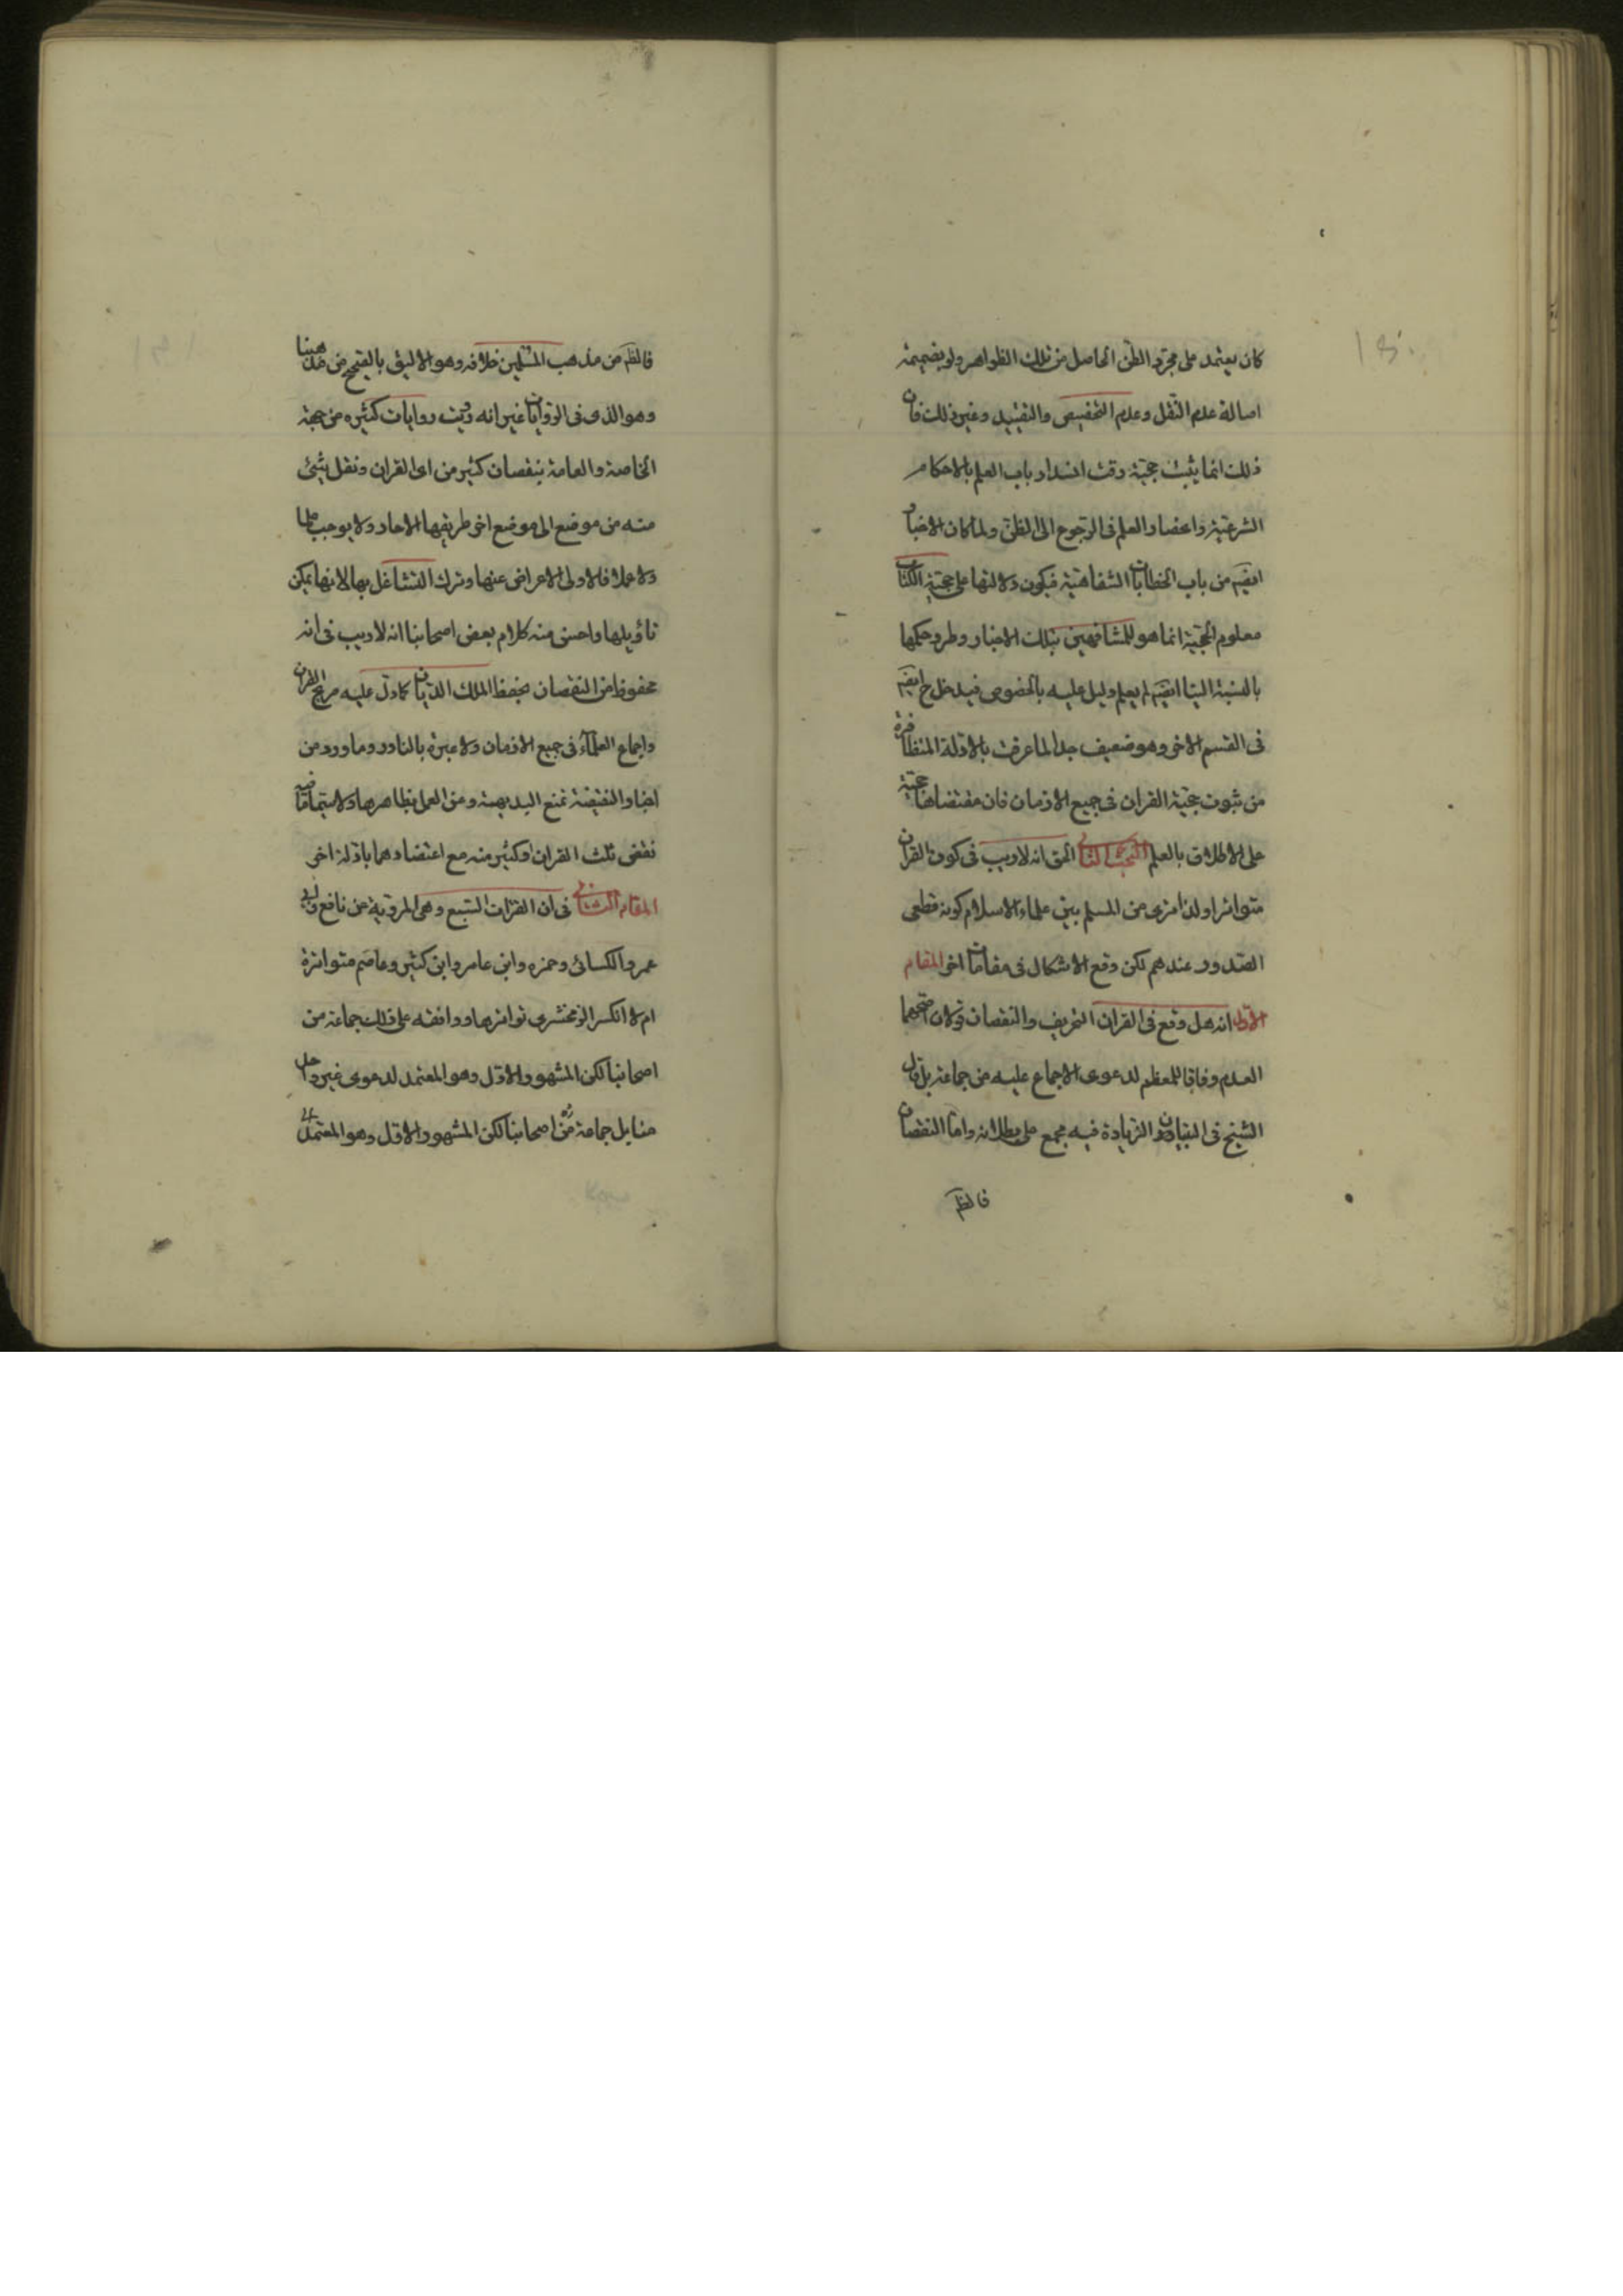 كان يعتمد على مجرد الظن الحاصل من تلك الظواهر ولو بضميمة
اصالة عدم النقل وعدم التخصيص والتقييد وغير ذلك فان
ذلك انما يثبت حجيته وقت انسداد باب العلم بالاحكام
الشرعية وانحصار العلم فى الرجوع الى الظن ولما كان الاخبار
ايضَ من باب الخطابات الشفاهية فيكون دلالتها على حجية الكتاب
معلوم الحجية انما هو للمشافهين بتلك الاخبار وطرو حكمها
بالنسبة الينا ايضَ لم يعلم دليل عليه بالخصوص فيدخل ح ايضَ
فى القسم الاخر وهو ضعيف جدا لما عرفت بالادلة المتظافرة
من ثبوت حجية القران فى جميع الازمان فان مقتضاها حجية
على الاطلاق بالعلم البحث الثانى الحق انه لا ريب فى كون القران
متواترا ولذا مرى من المسلم بين علماء الاسلام كونه قطعى
الصدور عندهم لكن وقع الاشكال فى مقامات اخر المقام
الاول انه هل وقع فى القران التحريف والنقصان قولان اصحهما
العدم وفاقا للمعظم لدعوى الاجماع عليه من جماعة بل قال
الشيخ فى التبيان والزيادة فيه مجمع على بطلانه واما النقصان
فالظَ
١٥٠
فالظَ من مذهب المسلمين خلافه وهو الاليق بالصحيح من مذهبنا
وهو الذى فى الروايات غير انه رويت روايات كثيره من جهة
الخاصة والعامة بنقصان كثير من اى القران ونقل شئ
منه من موضع الى موضع اخر طريقها الاحاد ولا يوجب علما
ولا عملا فالاولى الاعراض عنها وترك التشاغل بها لانها يمكن
تاويلها واحسن منه كلام بعض اصحابنا انه لا ريب فى انه
محفوظ من النقصان بحفظ الملك الديان كما دل عليه صريح القران
واجماع العلماء فى جميع الازمان ولا عبرة بالنادر وما ورد من
اخبار النقيصة تمنع البديهة ومن العمل بظاهرها ولا سيما ما فيه
نقص ثلث القران او كثير منه مع اعتضادهما بادلة اخر
المقام الثانى فى ان القرات السبع وهى المروية عن نافع وابى
عمر والكسائى وحمزه وابن عامر وابن كثير وعاصم متواترة
ام لا انكر الزمخشرى تواترها ووافقه على ذلك جماعة من
اصحابنا لكن المشهور الاول وهو المعتمد لدعوى غير واحد
منا بل جماعة من اصحابنا لكن المشهور الاول وهو المعتمد